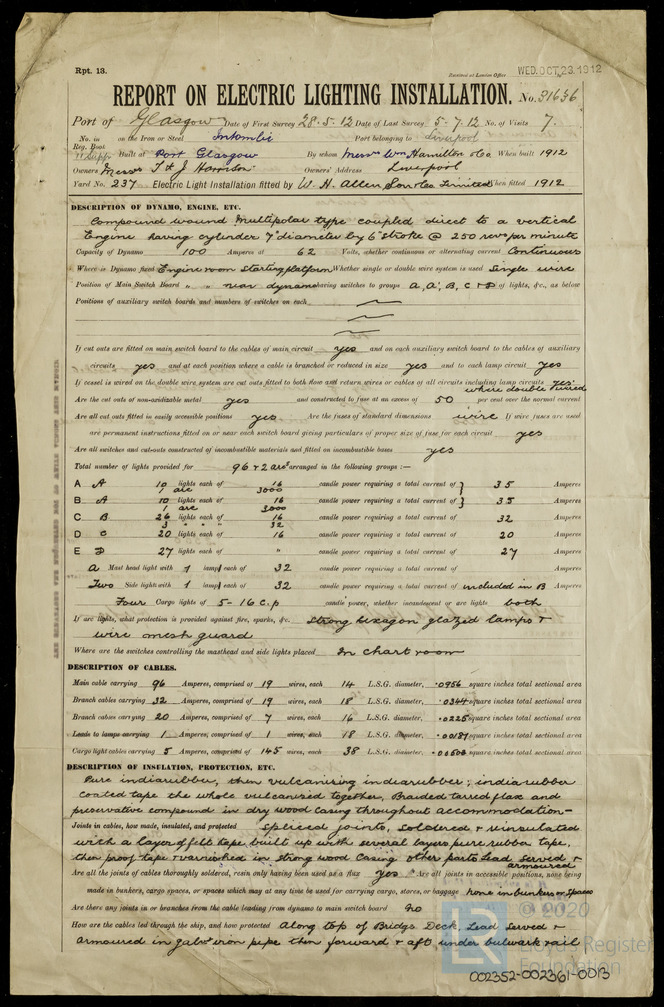 Rpt. 13.
Received at London Office WED. OCT. 23. 1912
REPORT ON ELECTRIC LIGHTING INSTALLATION. No. 31636
Port of Glasgow Date of First Survey 28.5.12 Date of Last Survey 5.7.12 No. of Visits 7.
No. in on the Iron or Steel Intombi Port belonging to Liverpool
Reg. Book
11 Supp. Built at Port Glasgow By whom Messrs Wm Hamilton & Co When built 1912
Owners Messrs T & J Harrison Owners' Address Liverpool
Yard No. 237 Electric Light Installation fitted by W. H. Allen Son & Co Limited When fitted 1912
DESCRIPTION OF DYNAMO, ENGINE, ETC.
Compound wound Multipolar type coupled direct to a vertical
Engine having cylinder 7" diameter by 6" stroke @ 250 revs per minute
Capacity of Dynamo 100 Amperes at 62 Volts, whether continuous or alternating current Continuous
Where is Dynamo fixed Engine room starting platform Whether single or double wire system is used Single wire
Position of Main Switch Board " " near dynamo having switches to groups A, A', B, C & D of lights, &c., as below
Positions of auxiliary switch boards and numbers of switches on each
If cut outs are fitted on main switch board to the cables of main circuit yes and on each auxiliary switch board to the cables of auxiliary
circuits yes and at each position where a cable is branched or reduced in size yes and to each lamp circuit yes
If vessel is wired on the double wire system are cut outs fitted to both flow and return wires or cables of all circuits including lamp circuits yes
where double wired
Are the cut outs of non-oxidizable metal yes and constructed to fuse at an excess of 50 per cent over the normal current
Are all cut outs fitted in easily accessible positions yes Are the fuses of standard dimensions wire If wire fuses are used
are permanent instructions fitted on or near each switch board giving particulars of proper size of fuse for each circuit yes
Are all switches and cut-outs constructed of incombustible materials and fitted on incombustible bases yes
Total number of lights provided for 96 + 2 arcs arranged in the following groups :—
A A 10 lights each of 16 candle power requiring a total current of } 35 Amperes
1 arc 3000
B A 10 lights each of 16 candle power requiring a total current of } 35 Amperes
1 arc 3000
C B 26 lights each of 16 candle power requiring a total current of 32 Amperes
3 " " 32
D C 20 lights each of 16 candle power requiring a total current of 20 Amperes
E D 27 lights each of " candle power requiring a total current of 27 Amperes
A Mast head light with 1 lamp each of 32 candle power requiring a total current of Amperes
Two Side light with 1 lamp each of 32 candle power requiring a total current of included in B Amperes
Four Cargo lights of 5 - 16 c.p candle power, whether incandescent or arc lights both
If arc lights, what protection is provided against fire, sparks, &c. Strong hexagon glazed lamps &
wire mesh guard
Where are the switches controlling the masthead and side lights placed In chart room
DESCRIPTION OF CABLES.
Main cable carrying 96 Amperes, comprised of 19 wires, each 14 L.S.G. diameter, .0956 square inches total sectional area
Branch cables carrying 32 Amperes, comprised of 19 wires, each 18 L.S.G. diameter, .0344 square inches total sectional area
Branch cables carrying 20 Amperes, comprised of 7 wires, each 16 L.S.G. diameter, .0225 square inches total sectional area
Leads to lamps carrying 1 Amperes, comprised of 1 wires, each 18 L.S.G. diameter, .00181 square inches total sectional area
Cargo light cables carrying 5 Amperes, comprised of 145 wires, each 38 L.S.G. diameter, .00508 square inches total sectional area
DESCRIPTION OF INSULATION, PROTECTION, ETC.
Pure indiarubber, then vulcanising indiarubber; indiarubber
coated tape the whole vulcanised together, Braided tarred flax and
preservative compound in dry wood casing throughout accommodation—
Joints in cables, how made, insulated, and protected Spliced joints, soldered & reinsulated
with a layer of felt tape built up with several layers pure rubber tape,
then proof tape & varnished in strong wood casing other parts Lead served &
armoured
Are all the joints of cables thoroughly soldered, resin only having been used as a flux yes Are all joints in accessible positions, none being
made in bunkers, cargo spaces, or spaces which may at any time be used for carrying cargo, stores, or baggage none in bunkers or spaces
Are there any joints in or branches from the cable leading from dynamo to main switch board no
How are the cables led through the ship, and how protected Along top of Bridge Deck, Lead served &
armoured in galvd iron pipe then forward & aft under bulwark rail
© 2020
LR Lloyd's Register
Foundation
002352-002361-0013